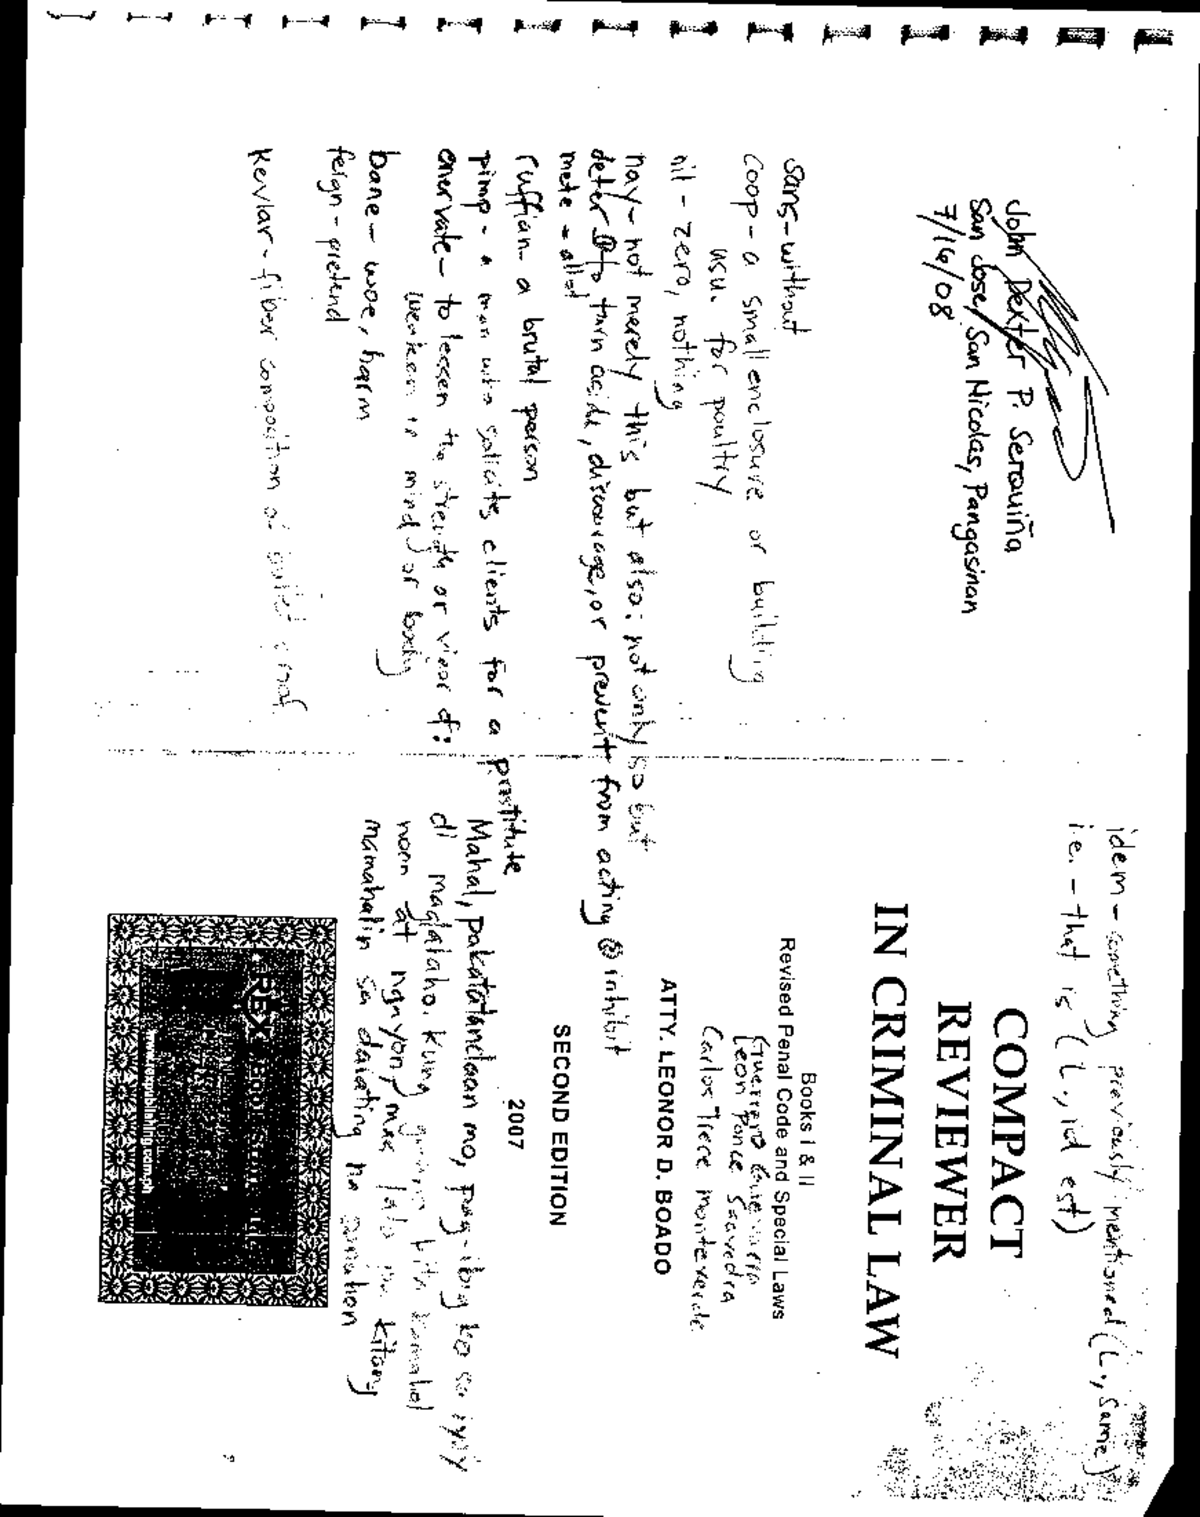 John Dexter P. Serquiña
San Jose, San Nicolas, Pangasinan
7/16/08
sans - without
coop - a small enclosure or building
usu. for poultry
nil - zero, nothing
nay - not merely this but also; not only so but
deter to turn aside, discourage, or prevent from acting inhibit
mete - allot
ruffian - a brutal person
pimp - a man who solicits clients for a prostitute
enervate - to lessen the strength or vigor of;
weaken in mind or body
bane - woe, harm
feign - pretend
Kevlar - fiber composition of bullet proof
idem - something previously mentioned (L., same)
i.e. - that is (L., id est)
COMPACT
REVIEWER
IN CRIMINAL LAW
Books I & II
Revised Penal Code and Special Laws
Guerrero
Leon Ponce Saavedra
Carlos Trece monteverde
ATTY. LEONOR D. BOADO
SECOND EDITION
2007
Mahal, pakatatandaan mo, pag-ibig ko sa iyo'y
di maglalaho. Kung kita
noon at ngayon, mas lalo na kitang
mamahalin sa darating na panahon
REX BOOK STORE